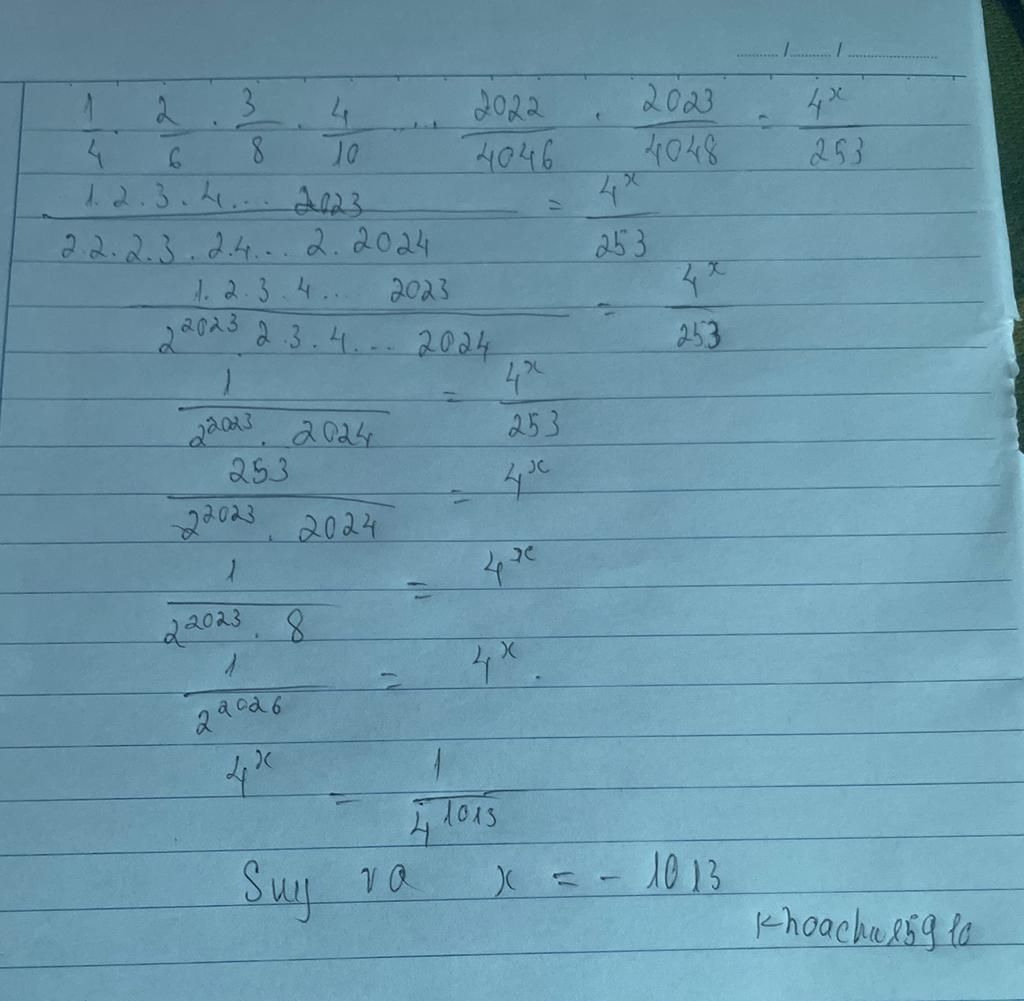 1/4 . 2/6 . 3/8 . 4/10 ... 2022/4046 . 2023/4048 = 4^x/253
1.2.3.4... 2023 / 2.2.2.3.2.4... 2.2024 = 4^x/253
1.2.3.4... 2023 / 2^2023.2.3.4... 2024 = 4^x/253
1 / 2^2023. 2024 = 4^x/253
253 / 2^2023. 2024 = 4^x
1 / 2^2023. 8 = 4^x
1 / 2^2026 = 4^x.
4^x = 1 / 4^1013
Suy ra x = - 1013